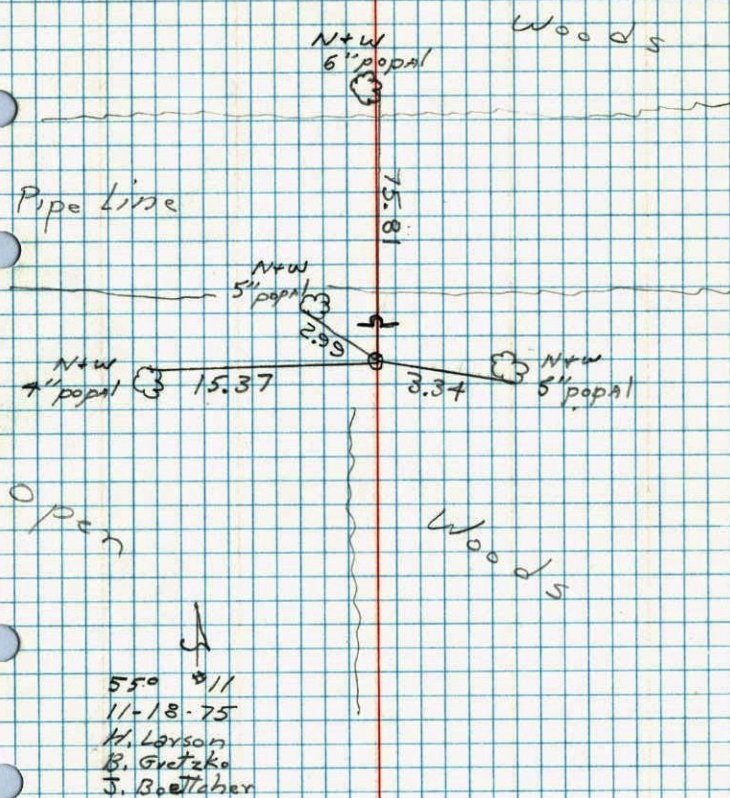 Woods
N+W
6" popal
75.81
Pipe Line
N+W
5" popal
2.99
N+W
4" popal
15.37
3.34
N+W
5" popal
Open
Woods
55° #11
11-18-75
H. Larson
B. Gretzko
J. Boettcher